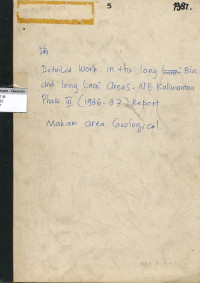 5
1987.
Detailed Work in the long Bia
and long Laai Areas. NE Kalimantan
Phase VI (1986-87) Report
Maham area Geological.